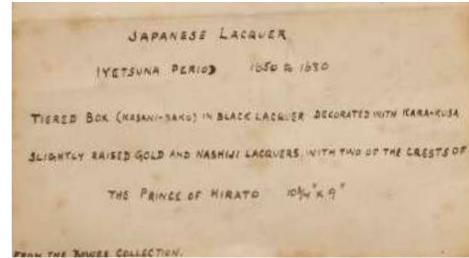 JAPANESE LACQUER.
IYETSUNA PERIOD 1650 to 1680
TIERED BOX (KASANI-BAKO) IN BLACK LACQUER DECORATED WITH KARA-KUSA
SLIGHTLY RAISED GOLD AND NASHIJI LACQUERS, WITH TWO OF THE CRESTS OF
THE PRINCE OF HIRATO 10¾" x 9"
FROM THE BOWES COLLECTION.